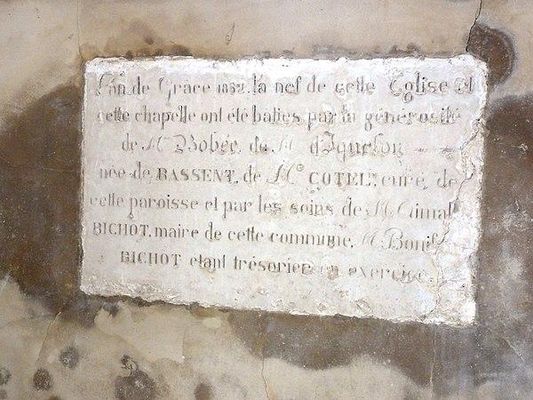 L'an de Grace 1832 la nef de cette Eglise et
cette chapelle ont été baties par la générosité
de Mr Bobée, de M d'Iquelon
née de BASSENT, de Mr COTEL, curé de
cette paroisse et par les soins de M
BICHOT, maire de cette commune, M
BICHOT etant trésorier en exercice.